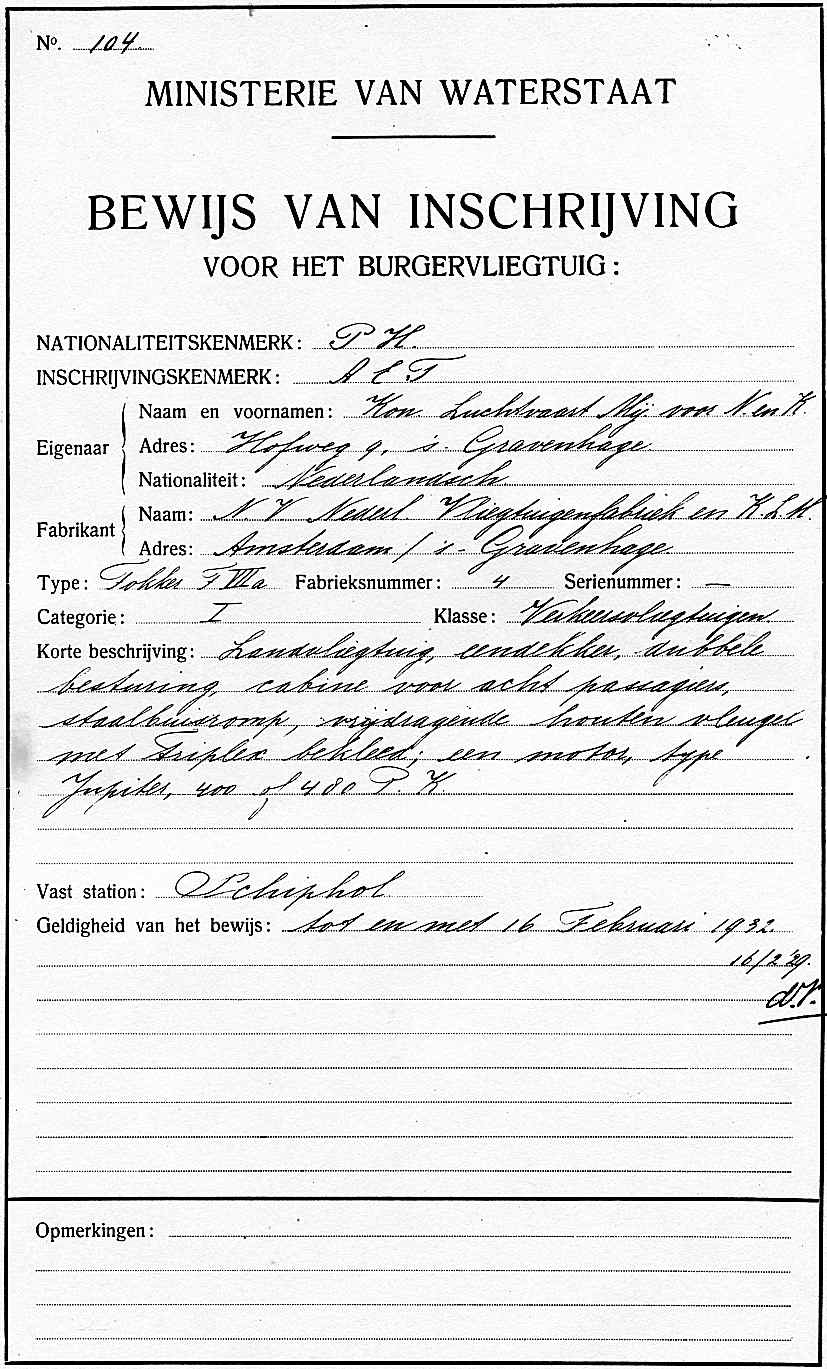 No. 104
MINISTERIE VAN WATERSTAAT
BEWIJS VAN INSCHRIJVING
VOOR HET BURGERVLIEGTUIG:
NATIONALITEITSKENMERK: P H.
INSCHRIJVINGSKENMERK: A E T
Eigenaar
Naam en voornamen: Kon. Luchtvaart Mij voor N. en K.
Adres: Hofweg 9, 's-Gravenhage
Nationaliteit: Nederlandsch
Fabrikant
Naam: N.V. Nederl Vliegtuigenfabriek en K.L.M.
Adres: Amsterdam / 's-Gravenhage
Type: Fokker F VIIa Fabrieksnummer: 4 Serienummer: —
Categorie: I Klasse: Verkeersvliegtuigen
Korte beschrijving: Landvliegtuig, eendekker, dubbele
besturing, cabine voor acht passagiers,
staalbuisromp, vrijdragende houten vleugel
met triplex bekleed; een motor, type
Jupiter, 400 of 480 P.K.
Vast station: Schiphol
Geldigheid van het bewijs: tot en met 16 Februari 1932
16/2 '29.
d.V.
Opmerkingen: